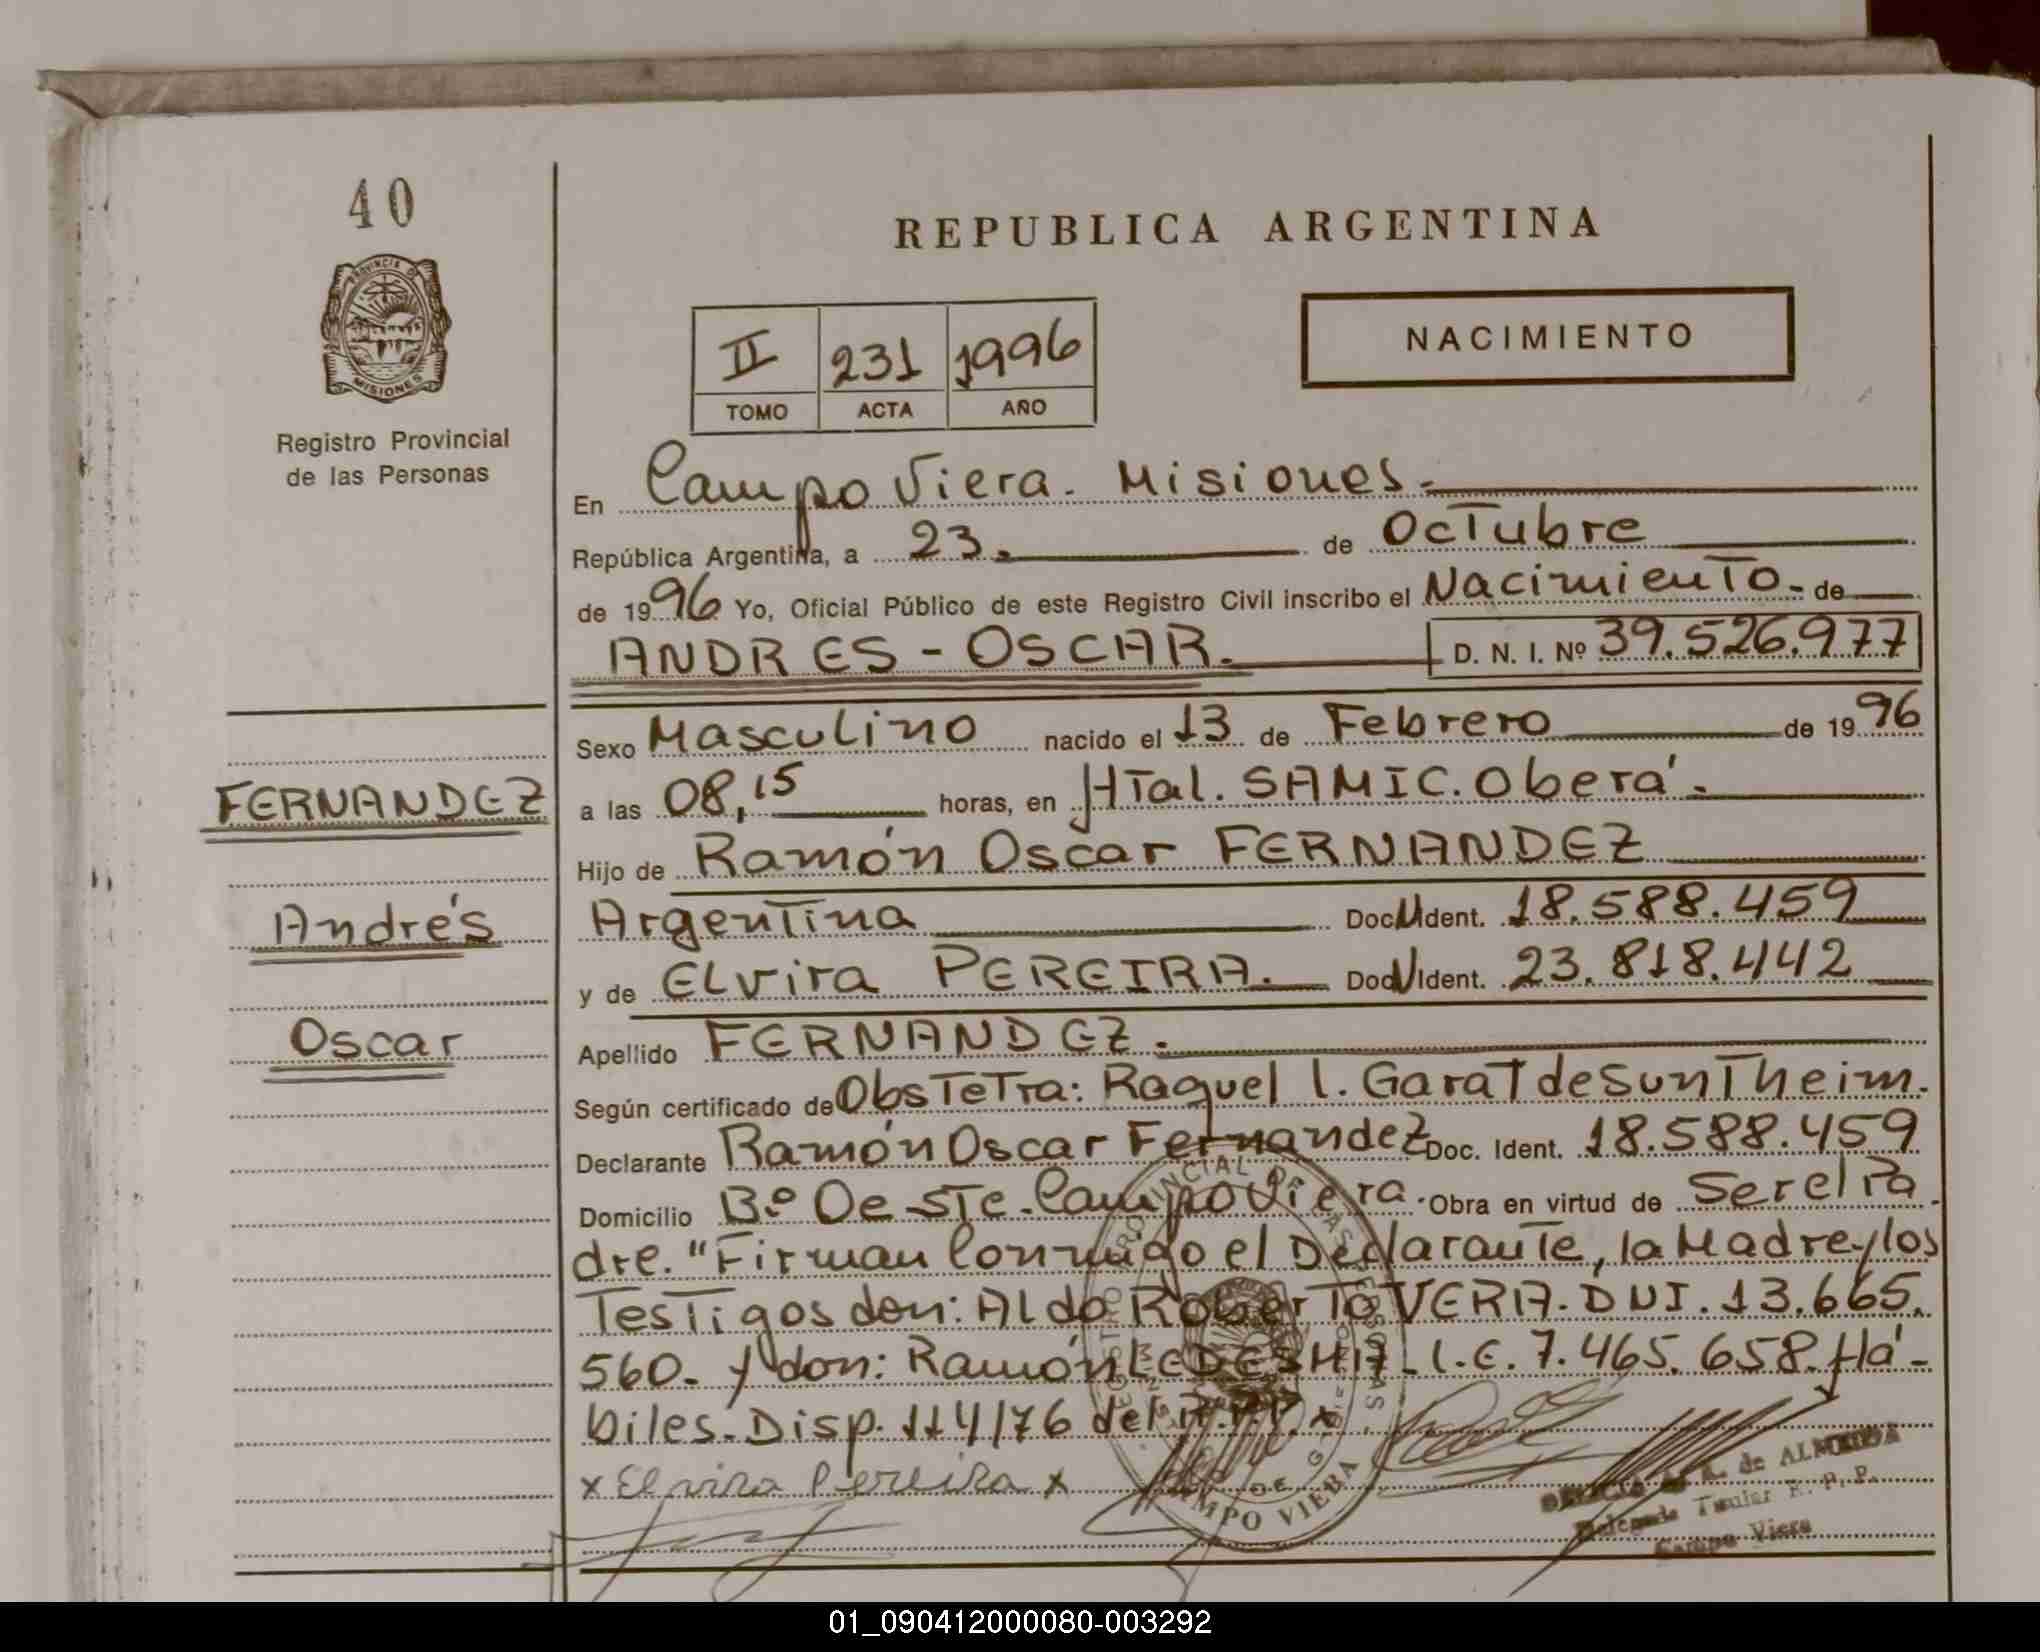 40
PROVINCIA DE
MISIONES
Registro Provincial
de las Personas
REPUBLICA ARGENTINA
II 231 1996
TOMO ACTA AÑO
NACIMIENTO
En Campo Viera. Misiones.
República Argentina, a 23. de Octubre
de 1996 Yo, Oficial Público de este Registro Civil inscribo el Nacimiento - de
ANDRES - OSCAR. D. N. I. Nº 39.526.977
Sexo Masculino nacido el 13 de Febrero de 1996
FERNANDEZ
a las 08,15 horas, en HTal. SAMIC. Oberá.
Hijo de Ramón Oscar FERNANDEZ
Andrés
Argentina Doc. Ident. 18.588.459
y de Elvira PEREIRA. Doc. Ident. 23.818.442
Oscar
Apellido FERNANDEZ.
Según certificado de Obstetra: Raquel l. Garat de Suntheim.
Declarante Ramón Oscar Fernandez Doc. Ident. 18.588.459
Domicilio Bº Oeste. Campo Viera. Obra en virtud de Ser el Pa
dre. "Firman Conmigo el Declarante, la Madre y los
Testigos don: Aldo Roberto VERA. DNI. 13.665.
560. y don: Ramón LEDESMA - L.E. 7.465.658. Há-
biles. Disp. 114/76 del R.P.P. x
x Elvira Pereira x
CAMPO VIERA
de ALMEIDA
Delegada Titular R. P. P.
Campo Viera
01_090412000080-003292